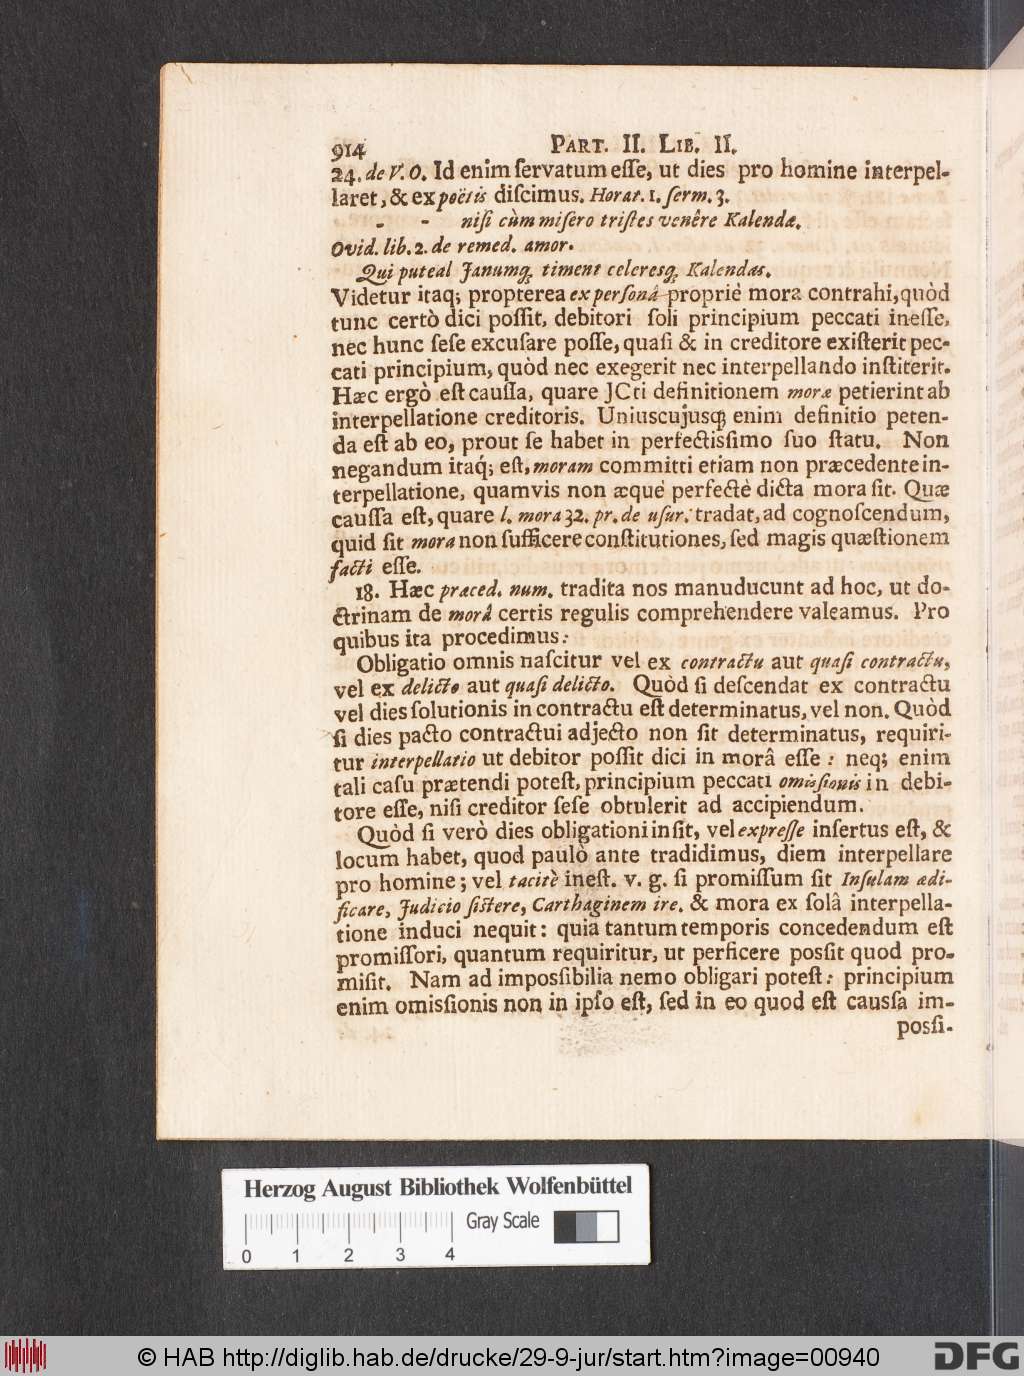 914 PART. II. LIB. II.
24. de V. O. Id enim ſervatum eſſe, ut dies pro homine interpel-
laret, & ex poëtis diſcimus. Horat. 1. ſerm. 3.
- - niſi cùm miſero triſtes venêre Kalendæ.
Ovid. lib. 2. de remed. amor.
Qui puteal Janumq; timent celeresq; Kalendas.
Videtur itaq; propterea ex perſonâ propriè mora contrahi, quòd
tunc certò dici poſſit, debitori ſoli principium peccati ineſſe,
nec hunc ſeſe excuſare poſſe, quaſi & in creditore exiſterit pec-
cati principium, quòd nec exegerit nec interpellando inſtiterit.
Hæc ergò eſt cauſſa, quare JCti definitionem moræ petierint ab
interpellatione creditoris. Uniuscujusq; enim definitio peten-
da eſt ab eo, prout ſe habet in perfectissimo ſuo ſtatu. Non
negandum itaq́; eſt, moram committi etiam non præcedente in-
terpellatione, quamvis non æquè perfectè dicta mora ſit. Quæ
cauſſa eſt, quare l. mora 32. pr. de uſur. tradat, ad cognoſcendum,
quid ſit mora non ſufficere conſtitutiones, ſed magis quæſtionem
facti eſſe.
18. Hæc præced. num. tradita nos manuducunt ad hoc, ut do-
ctrinam de morâ certis regulis comprehendere valeamus. Pro
quibus ita procedimus:
Obligatio omnis naſcitur vel ex contractu aut quaſi contractu,
vel ex delicto aut quaſi delicto. Quòd ſi deſcendat ex contractu
vel dies ſolutionis in contractu eſt determinatus, vel non. Quòd
ſi dies pacto contractui adjecto non ſit determinatus, requiri-
tur interpellatio ut debitor poſſit dici in morâ eſſe: neq; enim
tali caſu prætendi poteſt, principium peccati omissionis in debi-
tore eſſe, niſi creditor ſeſe obtulerit ad accipiendum.
Quòd ſi verò dies obligationi inſit, vel expreſſe inſertus eſt, &
locum habet, quod paulò ante tradidimus, diem interpellare
pro homine; vel tacitè ineſt. v. g. ſi promiſſum ſit Inſulam ædi-
ficare, Judicio ſiſtere, Carthaginem ire. & mora ex ſolâ interpella-
tione induci nequit: quia tantum temporis concedendum eſt
promiſſori, quantum requiritur, ut perficere possit quod pro-
miſit. Nam ad impossibilia nemo obligari poteſt: principium
enim omissionis non in ipſo eſt, ſed in eo quod eſt causſa im-
possi-
Herzog August Bibliothek Wolfenbüttel
Gray Scale
0 1 2 3 4
© HAB http://diglib.hab.de/drucke/29-9-jur/start.htm?image=00940
DFG